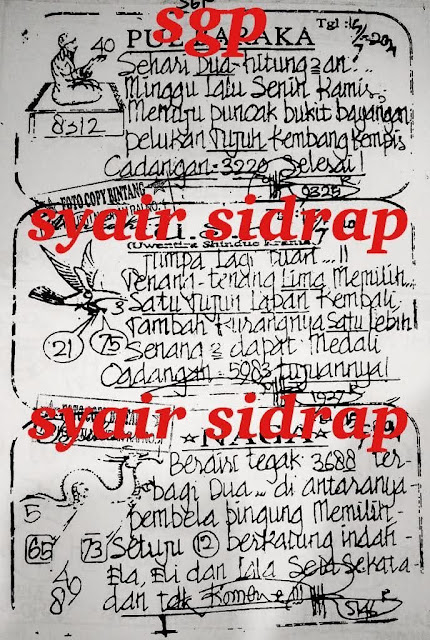 sgp
PUL KARAKA
Tgl :
40
8312
Sehari Dua-hitung2an!..
Minggu lalu Senin Kamis
Menuju puncak bukit bayangan
pelukan Tujuh Kembang Kempis
Cadangan = 3220 Selesai!
9325
FOTO COPY BINTANG
syair sidrap
(Uwendra Shinduc Krania)
Timpa lagi Tuan...!!
Tenang-tenang Lima Memilih..
Satu Tujuh Lapan Kembali.
Tambah Kurangnya Satu lebih
Senang2 dapat Medali
Cadangan = 5983 Tujuannya!
3
21
75
1927
syair sidrap
NAGA
Berdiri tegak 3688 Ter-
bagi Dua... di antaranya-
pembela bingung Memilih-
Setuju 12 berkabung indah-
Ela, Eli dan Lala Seia Sekata-
dan tak Komen
5
65
73
40
8
5146